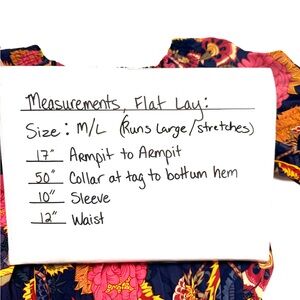 Measurements, Flat Lay:
Size: M/L (Runs Large/stretches)
17" Armpit to Armpit
50" Collar at tag to bottum hem
10" Sleeve
12" Waist